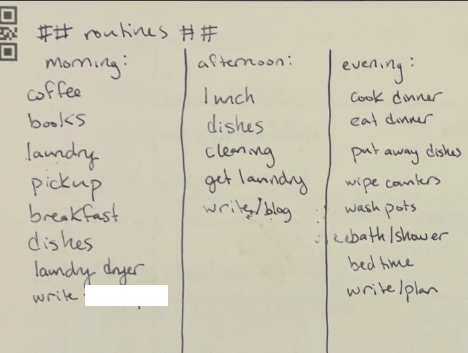 ## routines ##
morning:
coffee
books
laundry
pickup
breakfast
dishes
laundry dryer
write
afternoon:
lunch
dishes
cleaning
get laundry
write/blog
evening:
cook dinner
eat dinner
put away dishes
wipe counters
wash pots
bath/shower
bedtime
write/plan